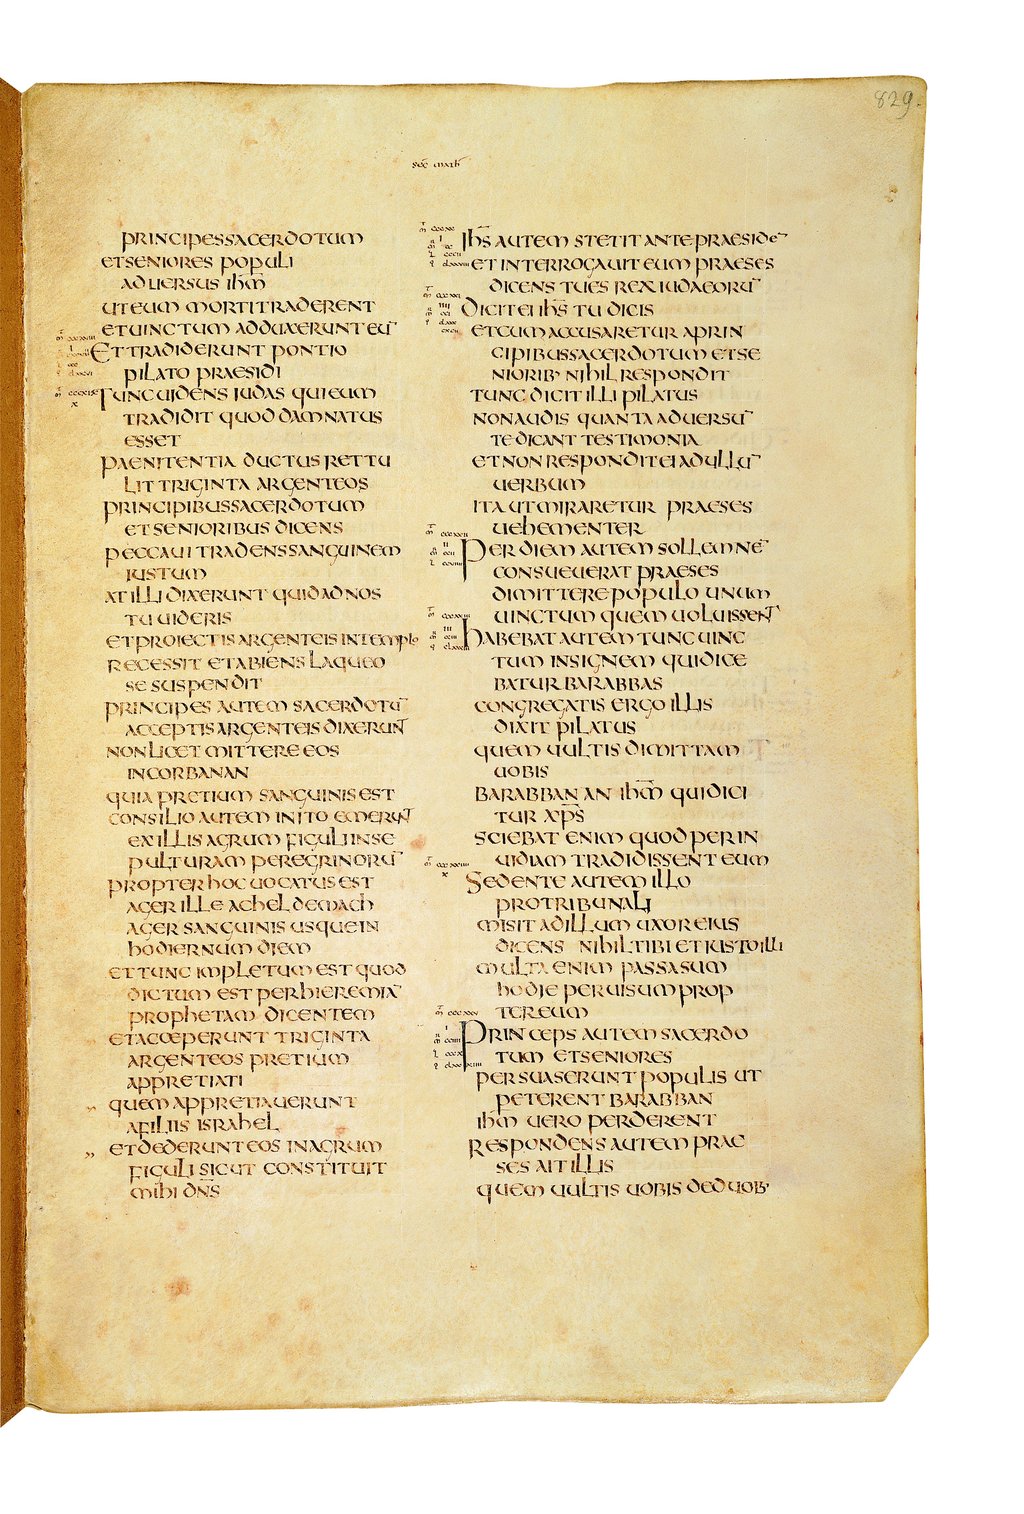 829.
sec math
PRINCIPES SACERDOTUM
ET SENIORES POPULI
ADUERSUS IHM̅
UT EUM MORTI TRADERENT
ET UINCTUM ADDUXERUNT EU̅
ET TRADIDERUNT PONTIO
PILATO PRAESIDI
TUNC UIDENS IUDAS QUI EUM
TRADIDIT QUOD DAMNATUS
ESSET
PAENITENTIA DUCTUS RETTU
LIT TRIGINTA ARGENTEOS
PRINCIPIBUS SACERDOTUM
ET SENIORIBUS DICENS
PECCAUI TRADENS SANGUINEM
IUSTUM
AT ILLI DIXERUNT QUID AD NOS
TU UIDERIS
ET PROIECTIS ARGENTEIS IN TEMPLO
RECESSIT ET ABIENS LAQUEO
SE SUSPENDIT
PRINCIPES AUTEM SACERDOTU̅
ACCEPTIS ARGENTEIS DIXERUNT
NON LICET MITTERE EOS
IN CORBANAN
QUIA PRETIUM SANGUINIS EST
CONSILIO AUTEM INITO EMERUNT
EX ILLIS AGRUM FIGULI IN SE
PULTURAM PEREGRINORU̅
PROPTER HOC UOCATUS EST
AGER ILLE ACHELDEMACH
AGER SANGUINIS USQUE IN
HODIERNUM DIEM
ET TUNC IMPLETUM EST QUOD
DICTUM EST PER HIEREMIA̅
PROPHETAM DICENTEM
ET ACCEPERUNT TRIGINTA
ARGENTEOS PRETIUM
APPRETIATI
QUEM APPRETIAUERUNT
A FILIIS ISRAHEL
ET DEDERUNT EOS IN AGRUM
FIGULI SICUT CONSTITUIT
MIHI DN̅S
IHS̅ AUTEM STETIT ANTE PRAESIDE̅
ET INTERROGAUIT EUM PRAESES
DICENS TU ES REX IUDAEORU̅
DICIT EI IHS̅ TU DICIS
ET CUM ACCUSARETUR A PRIN
CIPIBUS SACERDOTUM ET SE
NIORIB' NIHIL RESPONDIT
TUNC DICIT ILLI PILATUS
NON AUDIS QUANTA ADUERSU̅
TE DICANT TESTIMONIA
ET NON RESPONDIT EI AD ULLU̅
UERBUM
ITA UT MIRARETUR PRAESES
UEHEMENTER
PER DIEM AUTEM SOLLEMNE̅
CONSUEUERAT PRAESES
DIMITTERE POPULO UNUM
UINCTUM QUEM UOLUISSENT
HABEBAT AUTEM TUNC UINC
TUM INSIGNEM QUI DICE
BATUR BARABBAS
CONGREGATIS ERGO ILLIS
DIXIT PILATUS
QUEM UULTIS DIMITTAM
UOBIS
BARABBAN AN IHM̅ QUI DICI
TUR XPS̅
SCIEBAT ENIM QUOD PER IN
UIDIAM TRADIDISSENT EUM
SEDENTE AUTEM ILLO
PRO TRIBUNALI
MISIT AD ILLUM UXOR EIUS
DICENS NIHIL TIBI ET IUSTO ILLI
MULTA ENIM PASSA SUM
HODIE PER UISUM PROP
TER EUM
PRINCEPS AUTEM SACERDO
TUM ET SENIORES
PERSUASERUNT POPULIS UT
PETERENT BARABBAN
IHM̅ UERO PERDERENT
RESPONDENS AUTEM PRAE
SES AIT ILLIS
QUEM UULTIS UOBIS DE DUOB'